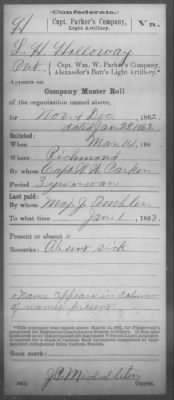 Confederate.
H
Capt. Parker's Company,
Light Artillery.
Va.
T. H. Holloway
Pvt, Capt. Wm. W. Parker's Company,
Alexander's Batt'n Light Artillery.
Appears on
Company Muster Roll
of the organization named above,
for Nov & Dec, 1862.
dated Jan 20 1863
Enlisted:
When Mar 14, 186
Where Richmond
By whom Capt. W. W. Parker
Period 3 years or war
Last paid:
By whom Maj. J. Ambler
To what time Jan 1, 1863.
Present or absent
Remarks: Absent sick
Name appears in column
of names present
Book mark:
J. P. Middleton
Copyist.